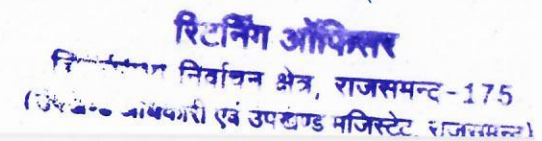 रिटर्निंग ऑफिसर
निर्वाचन क्षेत्र, राजसमन्द-175
(उपखण्ड अधिकारी एवं उपखण्ड मजिस्टेट, राजसमन्द)